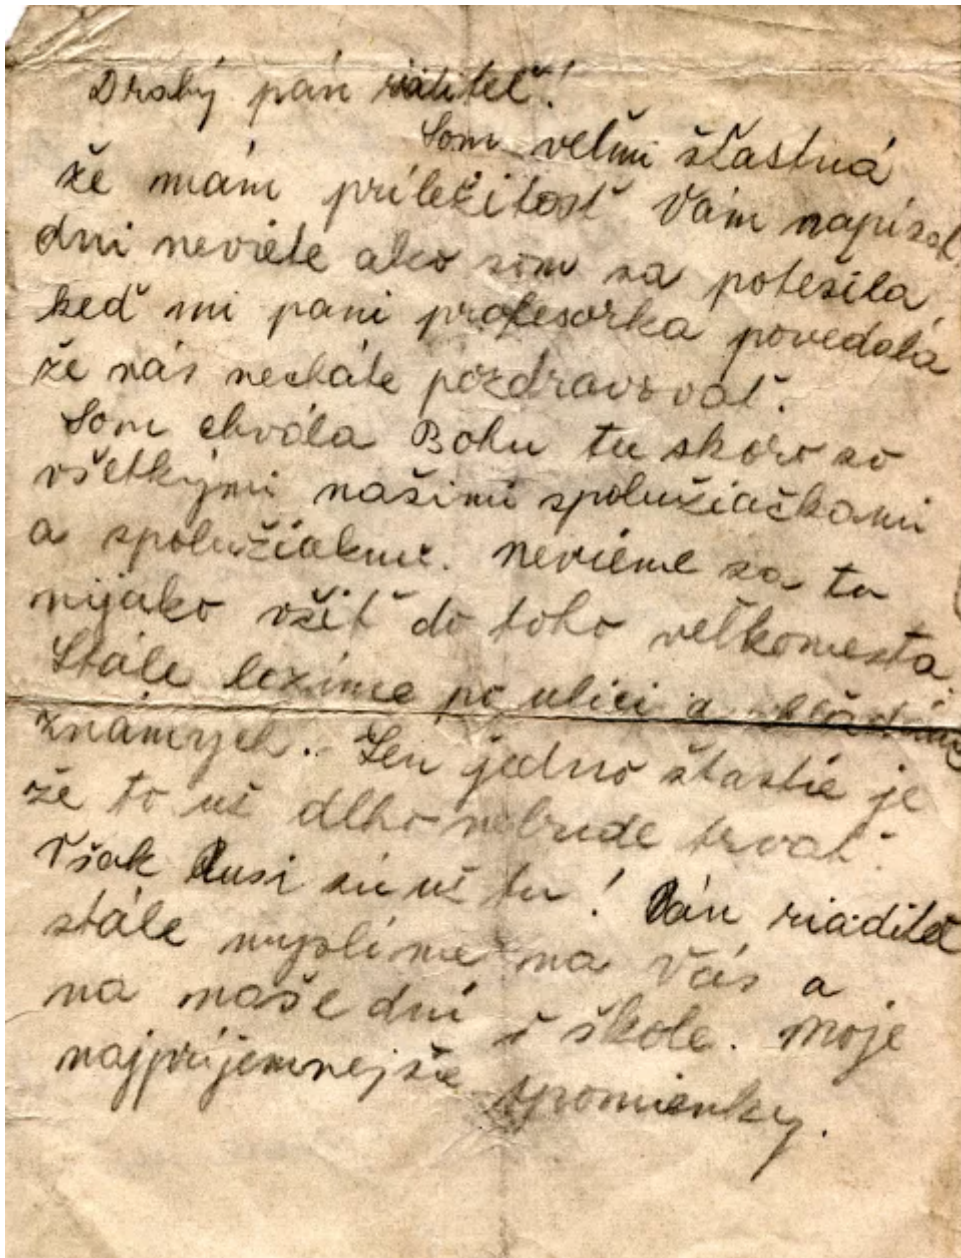 Drahý pán riaditeľ!
Som veľmi šťastná
že mám príležitosť Vám napísať,
dni neviete ako som sa potešila,
keď mi pani profesorka povedala
že nás necháte pozdravovať.
Som chvála Bohu tu skoro so
všetkými našimi spolužiačkami
a spolužiakmi. Nevieme sa tu
nijako vžiť do toho veľkomesta.
Stále lezíme po ulici a hľadáme
známych. Len jedno šťastie je
že to už dlho nebude trvať.
Však Rusi sú už tu! Pán riaditeľ
stále myslíme na Vás a
na naše dni v škole. Moje
najpríjemnejšie spomienky.